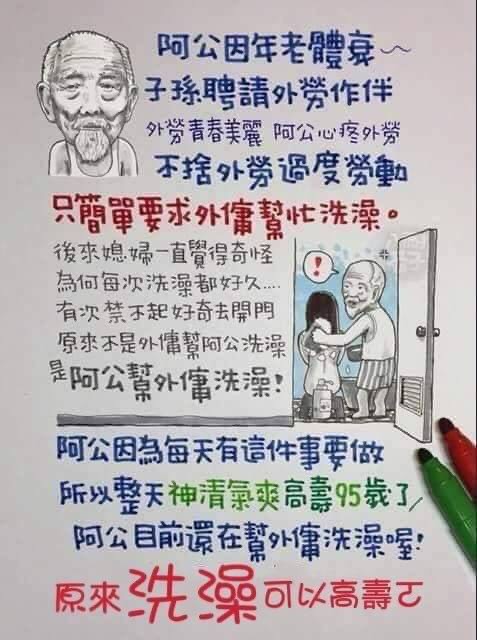 阿公因年老體衰～
子孫聘請外勞作伴
外勞青春美麗 阿公心疼外勞
不捨外勞過度勞動
只簡單要求外傭幫忙洗澡。
後來媳婦一直覺得奇怪
為何每次洗澡都好久....
有次禁不起好奇去開門
原來不是外傭幫阿公洗澡
是阿公幫外傭洗澡!
!
阿公因為每天有這件事要做
所以整天神清氣爽高壽95歲了/
阿公目前還在幫外傭洗澡喔!
原來洗澡可以高壽ㄛ